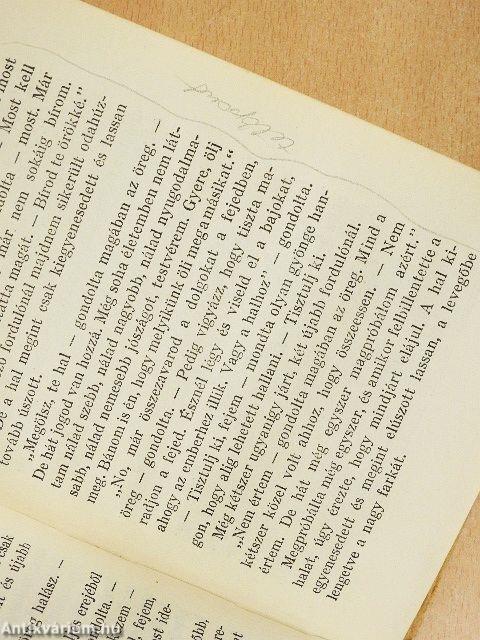 most
– Most kell
gondolta – most. Már
már nem sokáig bírom.
magát. – Bírod te örökké."
fordulónál majdnem sikerült odahúz-
De a hal megint csak kiegyenesedett és lassan
tovább úszott.
„Megölsz, te hal – gondolta magában az öreg. –
De hát jogod van hozzá. Még soha életemben nem lát-
tam nálad szebb, nálad nagyobb, nálad nyugodalma-
sabb, nálad nemesebb jószágot, testvérem. Gyere, ölj
meg. Bánom is én, hogy melyikünk öli meg a másikat."
„No, már összezavarod a dolgokat a fejedben,
öreg – gondolta. – Pedig vigyázz, hogy tiszta ma-
radjon a fejed. Észnél légy és viseld el a bajokat,
ahogy az emberhez illik. Vagy a halhoz" – gondolta.
– Tisztulj ki, fejem – mondta olyan gyönge han-
gon, hogy alig lehetett hallani. – Tisztulj ki.
Még kétszer ugyanúgy járt, két újabb fordulónál.
„Nem értem – gondolta magában az öreg. Mind a
kétszer közel volt ahhoz, hogy összeessen. – Nem
értem. De hát még egyszer magpróbálom azért."
Megpróbálta még egyszer, és amikor felbillentette a
halat, úgy érezte, hogy mindjárt elájul. A hal ki-
egyenesedett és megint elúszott lassan, a levegőbe
lengetve a nagy farkát.
csak
és újabb
és halász. –
és erejéből
fejem,
ide-
Antikvárium.hu